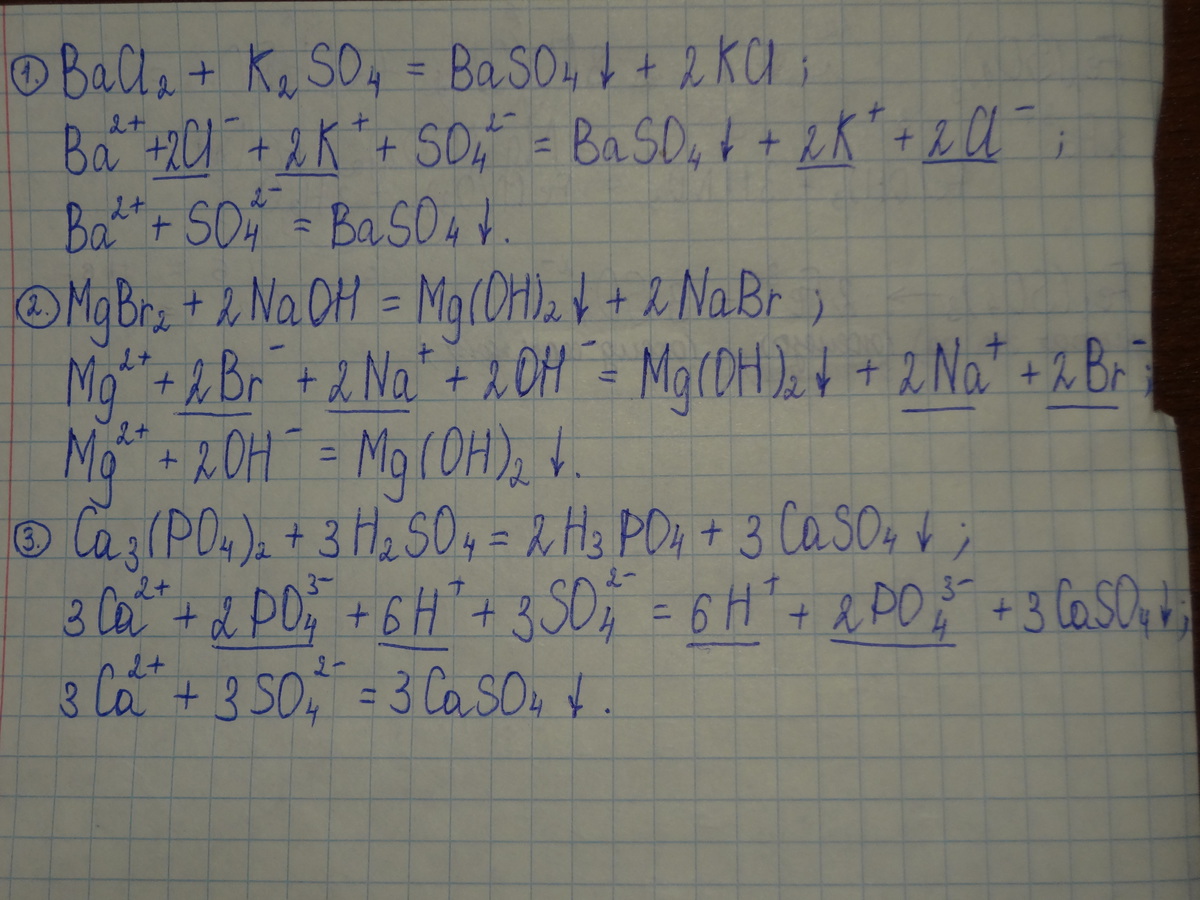 1. BaCl₂ + K₂SO₄ = BaSO₄↓ + 2KCl;
Ba²⁺ + 2Cl⁻ + 2K⁺ + SO₄²⁻ = BaSO₄↓ + 2K⁺ + 2Cl⁻;
Ba²⁺ + SO₄²⁻ = BaSO₄↓.
2. MgBr₂ + 2NaOH = Mg(OH)₂↓ + 2NaBr;
Mg²⁺ + 2Br⁻ + 2Na⁺ + 2OH⁻ = Mg(OH)₂↓ + 2Na⁺ + 2Br⁻;
Mg²⁺ + 2OH⁻ = Mg(OH)₂↓.
3. Ca₃(PO₄)₂ + 3H₂SO₄ = 2H₃PO₄ + 3CaSO₄↓;
3Ca²⁺ + 2PO₄³⁻ + 6H⁺ + 3SO₄²⁻ = 6H⁺ + 2PO₄³⁻ + 3CaSO₄↓;
3Ca²⁺ + 3SO₄²⁻ = 3CaSO₄↓.